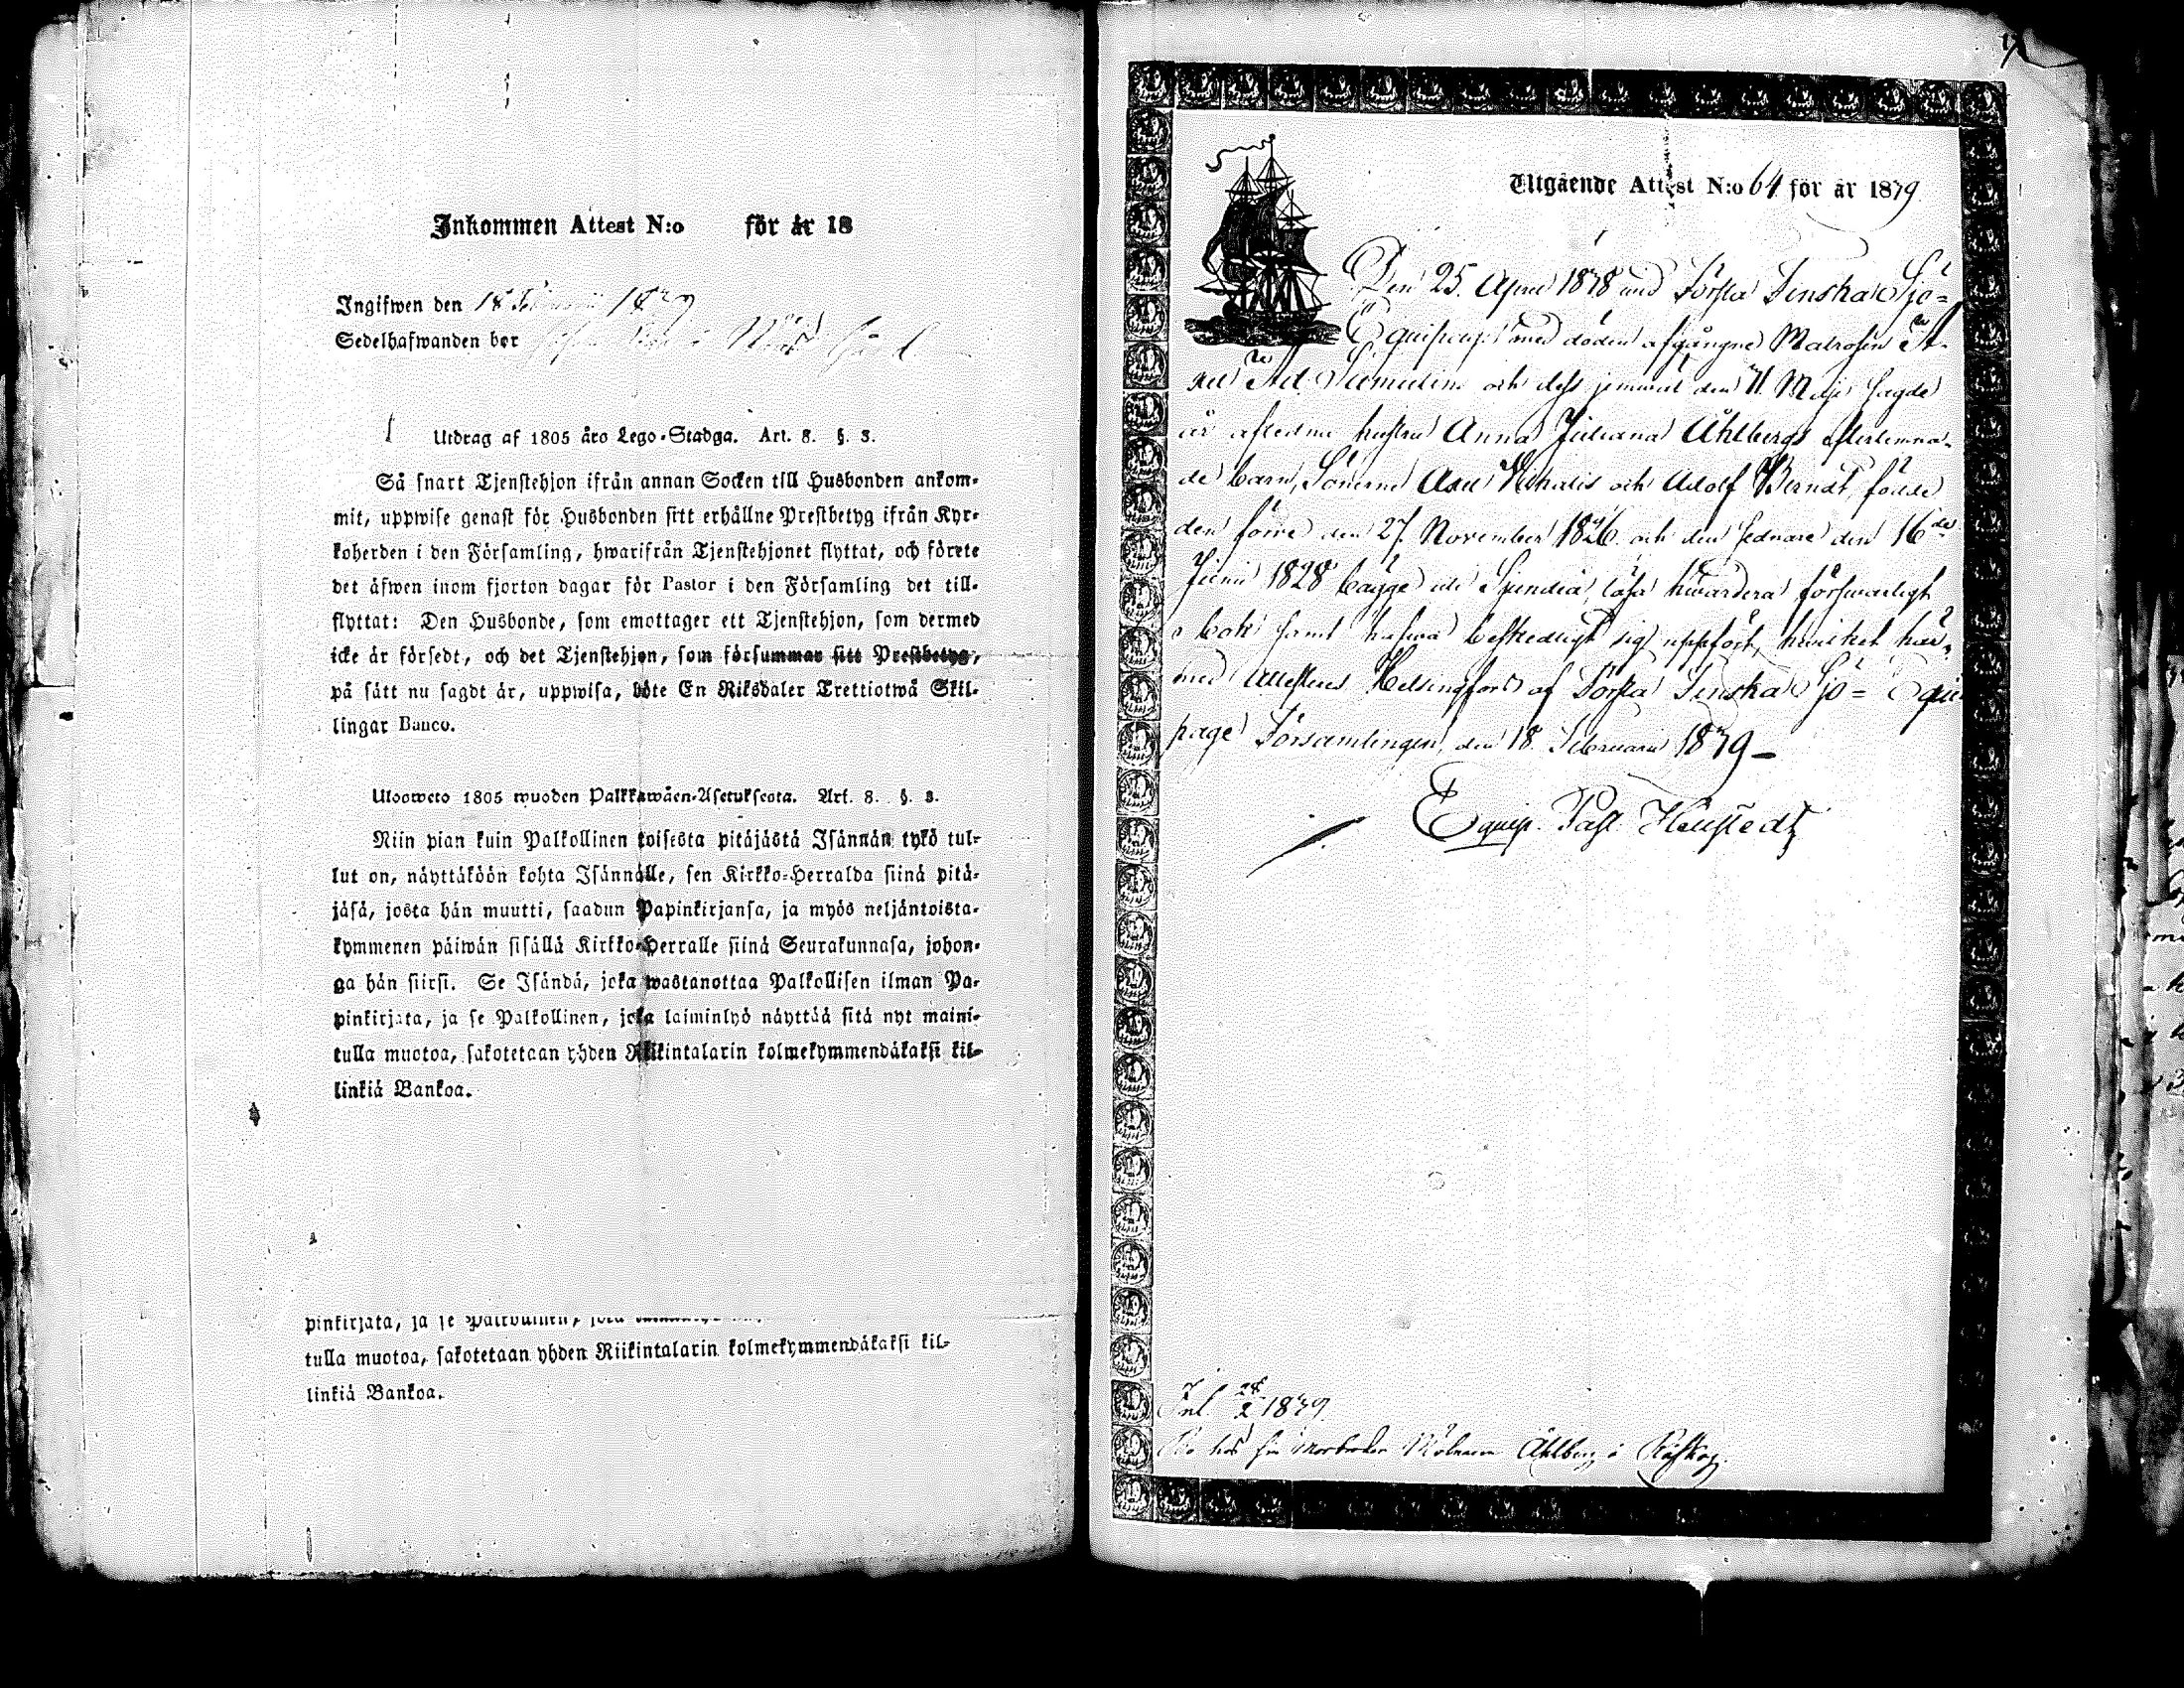 Inkommen Attest N:o för år 18
Ingifwen den 18 Februarii 18
Sedelhafwanden bor
Utdrag af 1805 åro Lego-Stadga. Art. 8. §. 3.
Så snart Tjenstehjon ifrån annan Socken till Husbonden ankom-
mit, uppwise genast för Husbonden sitt erhållne Prestbetyg ifrån Kyr-
koherden i den Församling, hwarifrån Tjenstehjonet flyttat, och förete
det äfwen inom fjorton dagar för Pastor i den Församling det till-
flyttat: Den Husbonde, som emottager ett Tjenstehjon, som dermed
icke är försedt, och det Tjenstehjon, som försummar sitt Prestbetyg,
på sätt nu sagdt är, uppwisa, böte En Riksdaler Trettiotwå Skil-
lingar Banco.
Ulooweto 1805 wuoden Palkkawäen-Asetuksesta. Art. 8. §. 3.
Niin pian kuin Palkollinen toisesta pitäjästä Isännän tykö tul-
lut on, näyttäköön kohta Isännälle, sen Kirkko-Herralda siinä pitä-
jäsä, josta hän muutti, saadun Papinkirjansa, ja myös neljäntoista-
kymmenen päiwän sisällä Kirkko-Herralle siinä Seurakunnasa, johon-
ga hän siirsi. Se Isändä, joka wastanottaa Palkollisen ilman Pa-
pinkirjata, ja se Palkollinen, joka laiminlyö näyttää sitä nyt maini-
tulla muotoa, sakotetaan yhden Riikintalarin kolmekymmendäkaksi kil-
linkiä Bankoa.
pinkirjata, ja se Palkollinen, joka
tulla muotoa, sakotetaan yhden Riikintalarin kolmekymmendäkaksi kil-
linkiä Bankoa.
Utgående Attest N:o 64 för år 1839.
Den 25. April 1838 vid Första Finska Sjö=
Equipaget med döden afgångne Matrosen
och dess jemwäl den 11. Maji sagde
år afledne hustru Anna Juliana Åhlbergs efterlemna-
de barn, Sönerne Axel och Adolf Berndt, födde
den förre den 27. November 1826 och den sednare den 16de
Junii 1828 bägge i Sjundeå, läsa hwardera förswarligt
i bok samt hafwa beskedligt sig uppfört, hwilket här-
med attesteras Helsingfors af Första Finska Sjö= Equi
page Församlingen, den 18. Februarii 1839 –
Equip. Past.
Inl. 28/2 1839.
Bo hos sin Morbroder Mölnaren Åhlberg i